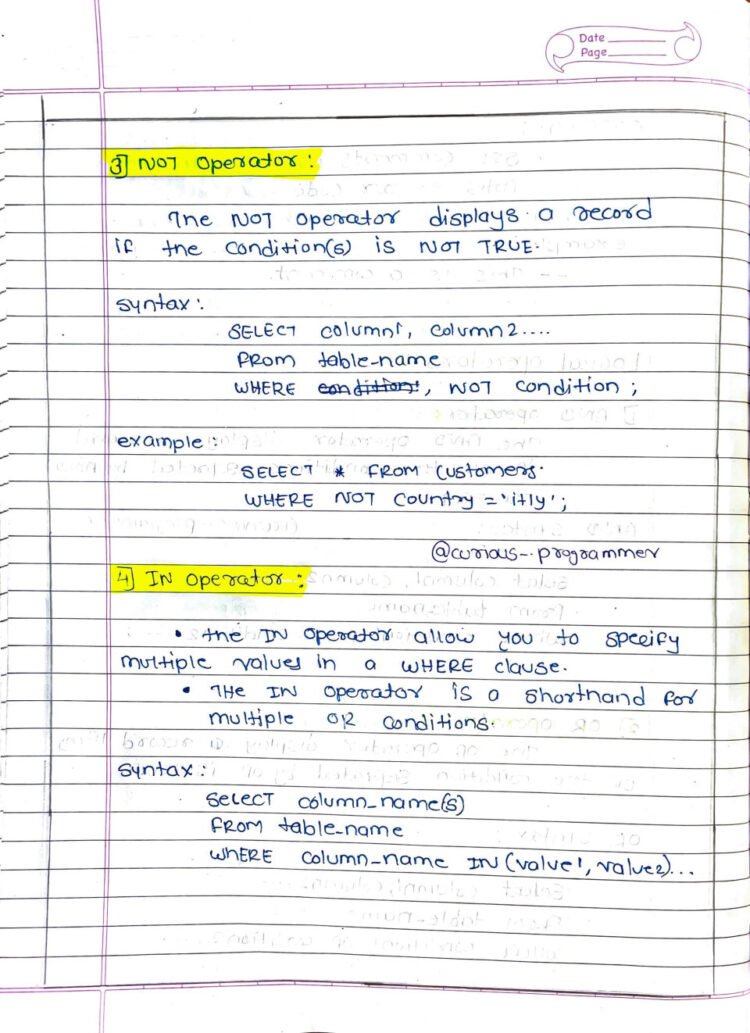 Date
Page
3] NOT Operator :
The NOT operator displays a record
if the condition(s) is NOT TRUE.
syntax :
SELECT column1, column2....
FROM table-name
WHERE condition1, NOT condition ;
example :
SELECT * FROM Customers.
WHERE NOT Country = 'itly' ;
@curious-.programmer
4] IN operator :
• the IN operator allow you to specify
multiple values in a WHERE clause.
• THe IN operator is a shorthand for
multiple OR conditions.
syntax :
SeleCT column_name(s)
FROM table-name
WHERE column-name IN (value1, value2)...